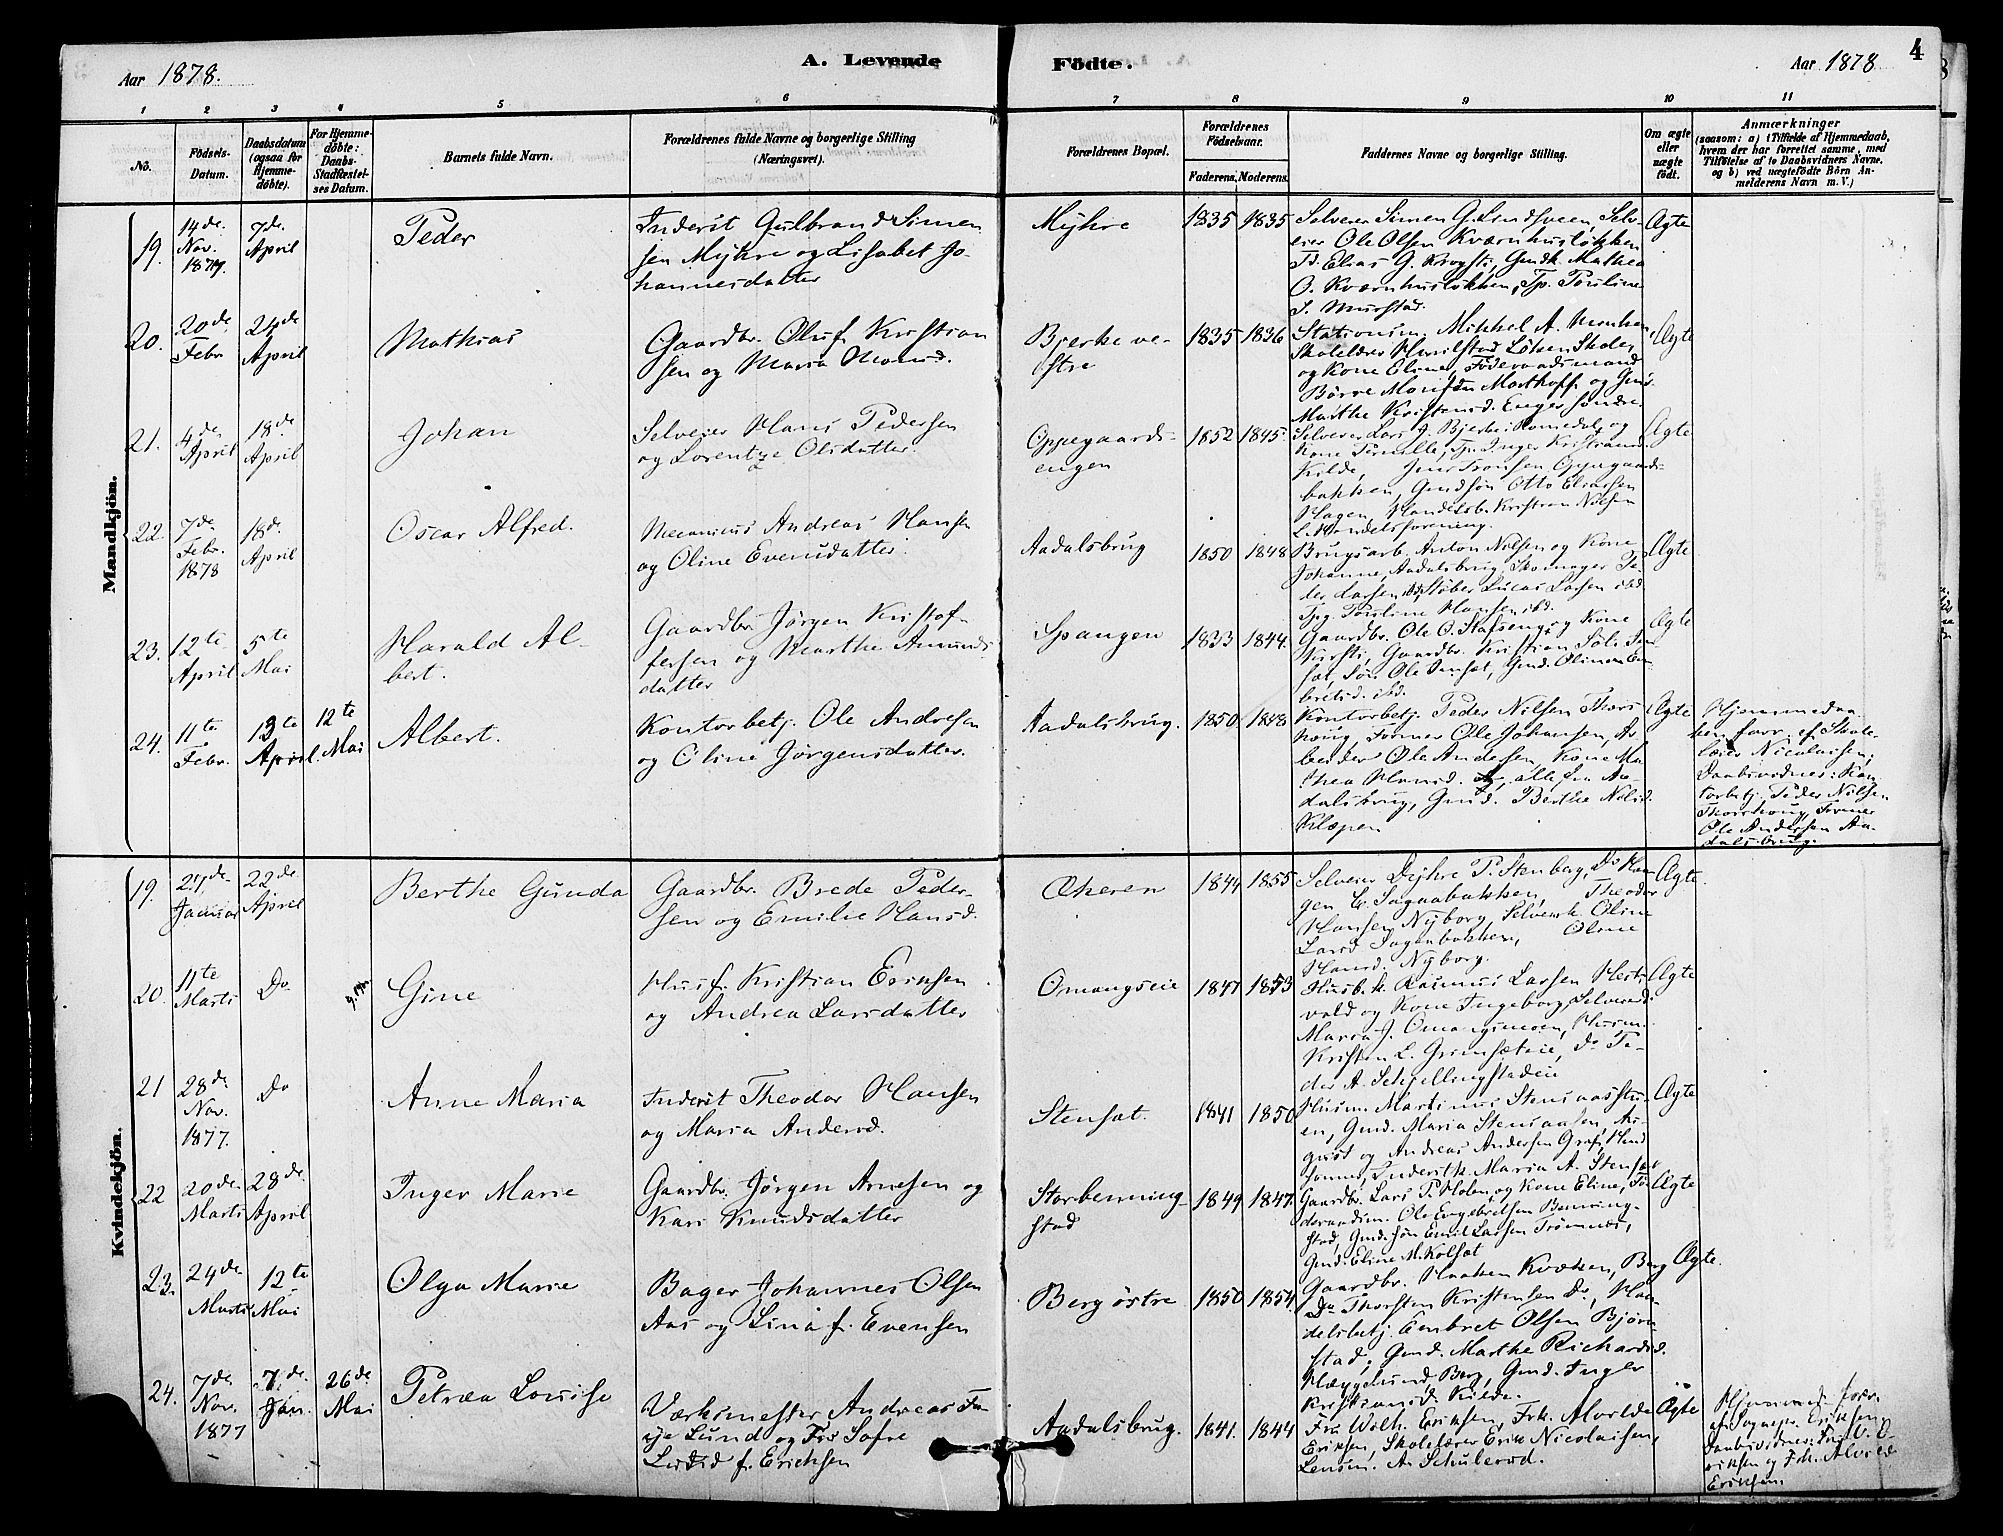 Aar 1878.
A. Levende Födte.
Aar 1878
4
1 2 3 4 5 6 7 8 9 10 11
No.
Födsels-Datum.
Daabsdatum (ogsaa for Hjemmedöbte).
For Hjemmedöbte: Daabs-Stadfæstelses Datum.
Barnets fulde Navn.
Forældrenes fulde Navne og borgerlige Stilling (Næringsvei).
Forældrenes Bopæl.
Forældrenes Födselsaar.
Faderens. Moderens.
Faddernes Navne og borgerlige Stilling.
Om ægte eller uægte födt.
Anmærkninger
(saasom: a) i Tilfælde af Hjemmedaab,
hvem der har forrettet samme, med
Tilföielse af to Daabsvidners Navne,
og b) ved uægtefödte Börn An-
melderens Navn m. V.)
Mandkjön.
19.
14de Nov. 1877.
7de April
Peder
Inderst Gulbrand Simen
sen Myhre og Lisabet Jo-
hannesdatter
Myhre
1835 1835
Selveier Simen G. Sendsveen, Selv-
eier Ole Olsen Kværnhusløkken
O. Kværnhusløkken, Tp. Pouline
S. Murstad.
Ægte
20.
20de Febr.
24de April
Mathias
Gaardbr. Oluf Kristian
sen og Maria
Bjerke ve-
stre
1835 1836
Stationsm. Mikkel A.
og Kone Eline, Föderaadsmand
Marthe Kristensd. Enger søndre.
Ægte
21.
4de April
18de April
Johan
Selveier Hans Pedersen
og Lorentze Olsdatter.
Oppegaards-
engen
1852 1845.
Selveier Lars J. Bjerke i Romedal og
Kone Pernille, Tp. Inger Kristiansd.
Kilde, Jens Tronsen Oppegaards-
bakken, Gmdsøn Otto Eliassen
Hagen, Handelsb. Kristian Nilsen
L. Handelsforening.
Ægte
22.
7de Febr. 1878
18de April
Oscar Alfred.
Mecanicus Andreas Hansen
og Oline Evensdatter.
Aadalsbrug
1850 1848
Brugsarb. Anton Nilsen og Kone
Johanne, Aadalsbrug, Skomager Pe-
der Larsen ibd, Støber Lucas Larsen ibd.
Tpg. Pouline Hansen ibd.
Ægte
23.
12te April
5te Mai
Harald Al-
bert.
Gaardbr. Jørgen Kristof-
fersen og Marthe Amunds
datter
Spangen
1833 1844.
Gaardbr. Ole O. Stafseng og Kone
Kirsti, Gaardbr. Kristian
bretsd. ibd.
Ægte
24.
11te Febr.
13te April.
12te Mai
Albert.
Kontorbetj. Ole Andresen
og Oline Jørgensdatter.
Aadalsbrug.
1850 1848
Kontorbetj. Peder Nilsen Thors
houg, Former Ole Johansen, Ar
beider Ole Andersen, Kone Ma
thea Hansd. alle fra Aa-
dalsbrug, Gmd. Berthe Nilsd.
Klæpen
Ægte
Hjemmedaa
ben forr. af Skole-
lærer Nicolaisen;
Daabsvidner: Kon
torbetj. Peder Nilsen
Thorshoug, Former
Ole Andersen Aa-
dalsbrug.
Kvindekjön.
19.
24de Januar
22de April
Berthe Gunda
Gaardbr. Brede Peder-
sen og Emilie Hansd.
Ækeren
1844 1855
Selveier Dyhre P. Stenberg, Do Haa
gen E. Sagaabakken, Theodor
Hansen Nyborg, Selveierk. Oline
Larsd. Sagenbakken, Oline
Hansd. Nyborg.
Ægte.
20.
11te Marts
Do
Gine
Husf. Kristian Eriksen
og Andrea Larsdatter
Omangseie
1847 1853
Husb.k. Rasmus Larsen
vold og Kone Ingeborg, Selveierd.
Maria J. Omangsmoen, Husm.
Kristen L. Grimsæteie, Do Pe-
der A. Schjellingstadeie
Ægte
21
28de Nov. 1877.
Do
Anne Maria
Inderst Theodor Hansen
og Maria Andersd.
Stensæt.
1841 1850
Husm. Martinus Stensaasstu-
en, Gmd. Maria Stensaasen, Au-
gust og Andreas Andersen
Inderstk. Maria A. Stensæt
Ægte
22
20de Marts
28de April
Inger Marie
Gaardbr. Jørgen Arnesen og
Kari Knudsdatter
Storbenning-
stad
1849 1847.
Gaardbr. Lars P. Holen og Kone Eline, Fö
deraadsm. Ole Engebretsen Benning-
stad, Gmd.søn Emil Larsen Trømnæs,
Gmd. Eline M. Kolsæt
Ægte
23.
24de Marts
12te Mai
Olga Marie
Bager Johannes Olsen
Aas og Lina f. Evensen
Berg østre
1850 1854.
Gaardbr. Haaken Kvæken, Berg
Do Thorsten Kristensen Do, Han-
delsbetj. Embret Olsen Bjørn-
stad, Gmd. Marthe Richardsd.
Berg, Gmd. Inger
Kristiansd. Kilde.
Ægte.
24.
7de Nov. 1877
7de Jan.
26de Mai
Petræa Louise
Værksmester Andreas
Lund og Fru Sofie
f. Erichsen
Aadalsbrug.
1841. 1844
Fru Wilh. Eriksen, Frk. Alvilde
Eriksen, Skolelærer Erik Nicolaisen,
Lensm. A. Schulerud.
Ægte
Hjemmed. forr.
af Sognepr. Eriksen,
Daabsvidner: Fru V. E-
riksen og Frk. Alvilde
Eriksen.